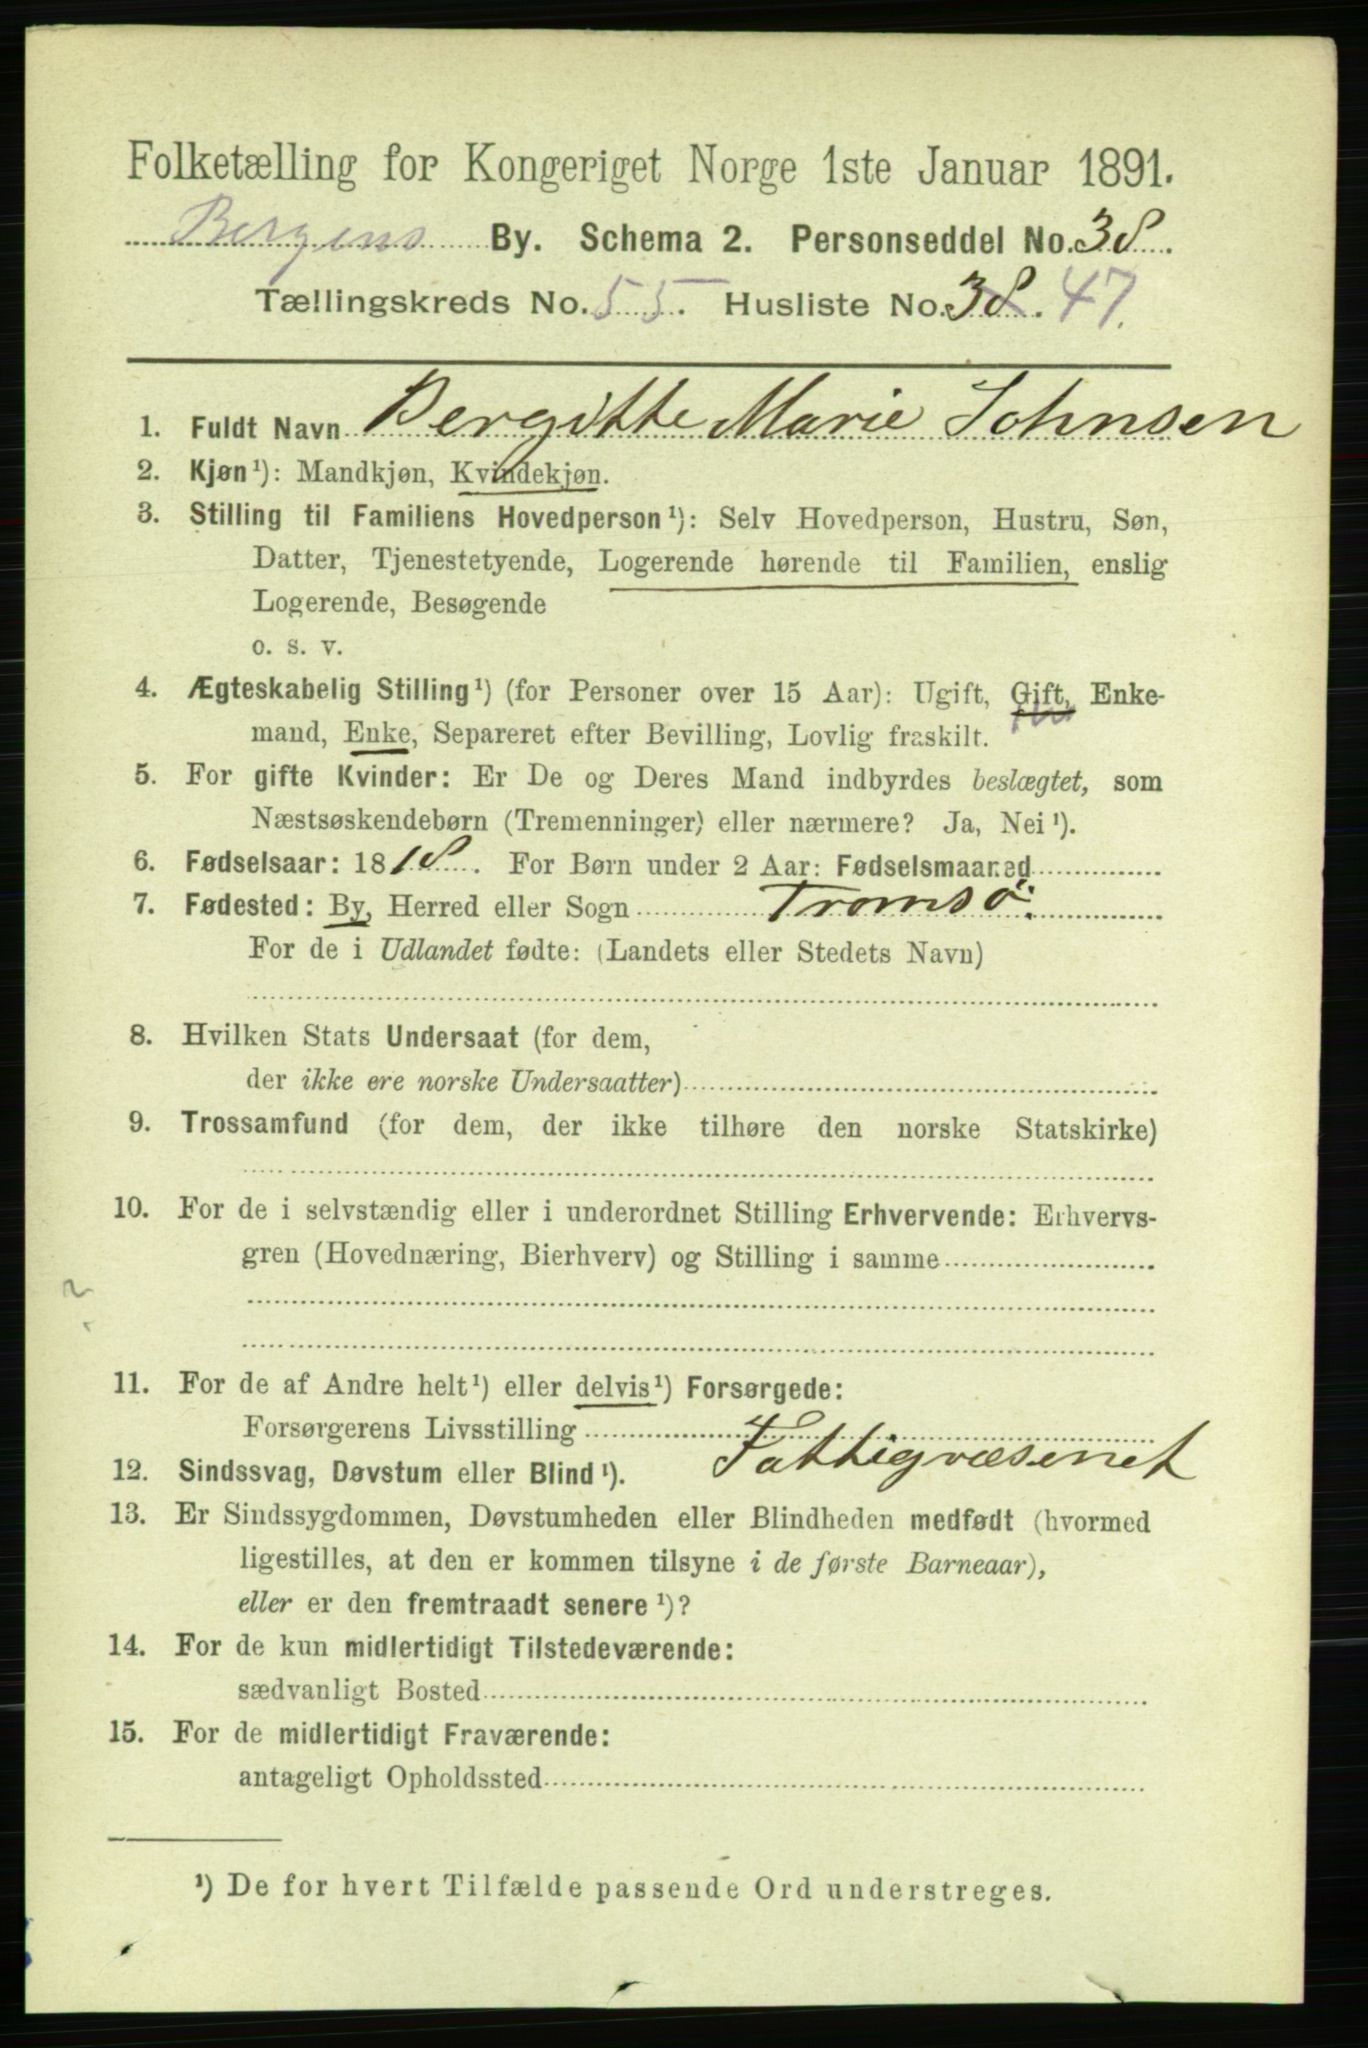 Folketælling for Kongeriget Norge 1ste Januar 1891.
Bergens By. Schema 2. Personseddel No. 38.
Tællingskreds No. 55. Husliste No. 38. 47.
1. Fuldt Navn Bergitte Marie Johnsen
2. Kjøn¹): Mandkjøn, Kvindekjøn.
3. Stilling til Familiens Hovedperson¹): Selv Hovedperson, Hustru, Søn,
Datter, Tjenestetyende, Logerende hørende til Familien, enslig
Logerende, Besøgende
o. s. v.
4. Ægteskabelig Stilling¹) (for Personer over 15 Aar): Ugift, Gift, Enke-
mand, Enke, Separeret efter Bevilling, Lovlig fraskilt.
5. For gifte Kvinder: Er De og Deres Mand indbyrdes beslægtet, som
Næstsøskendebørn (Tremenninger) eller nærmere? Ja, Nei¹).
6. Fødselsaar: 1818. For Børn under 2 Aar: Fødselsmaaned
7. Fødested: By, Herred eller Sogn Tromsö.
For de i Udlandet fødte: (Landets eller Stedets Navn)
8. Hvilken Stats Undersaat (for dem,
der ikke ere norske Undersaatter)
9. Trossamfund (for dem, der ikke tilhøre den norske Statskirke)
10. For de i selvstændig eller i underordnet Stilling Erhvervende: Erhvervs-
gren (Hovednæring, Bierhverv) og Stilling i samme
11. For de af Andre helt¹) eller delvis¹) Forsørgede:
Forsørgerens Livsstilling Fattigvæsenet
12. Sindssvag, Døvstum eller Blind¹).
13. Er Sindssygdommen, Døvstumheden eller Blindheden medfødt (hvormed
ligestilles, at den er kommen tilsyne i de første Barneaar),
eller er den fremtraadt senere¹)?
14. For de kun midlertidigt Tilstedeværende:
sædvanligt Bosted
15. For de midlertidigt Fraværende:
antageligt Opholdssted
¹) De for hvert Tilfælde passende Ord understreges.